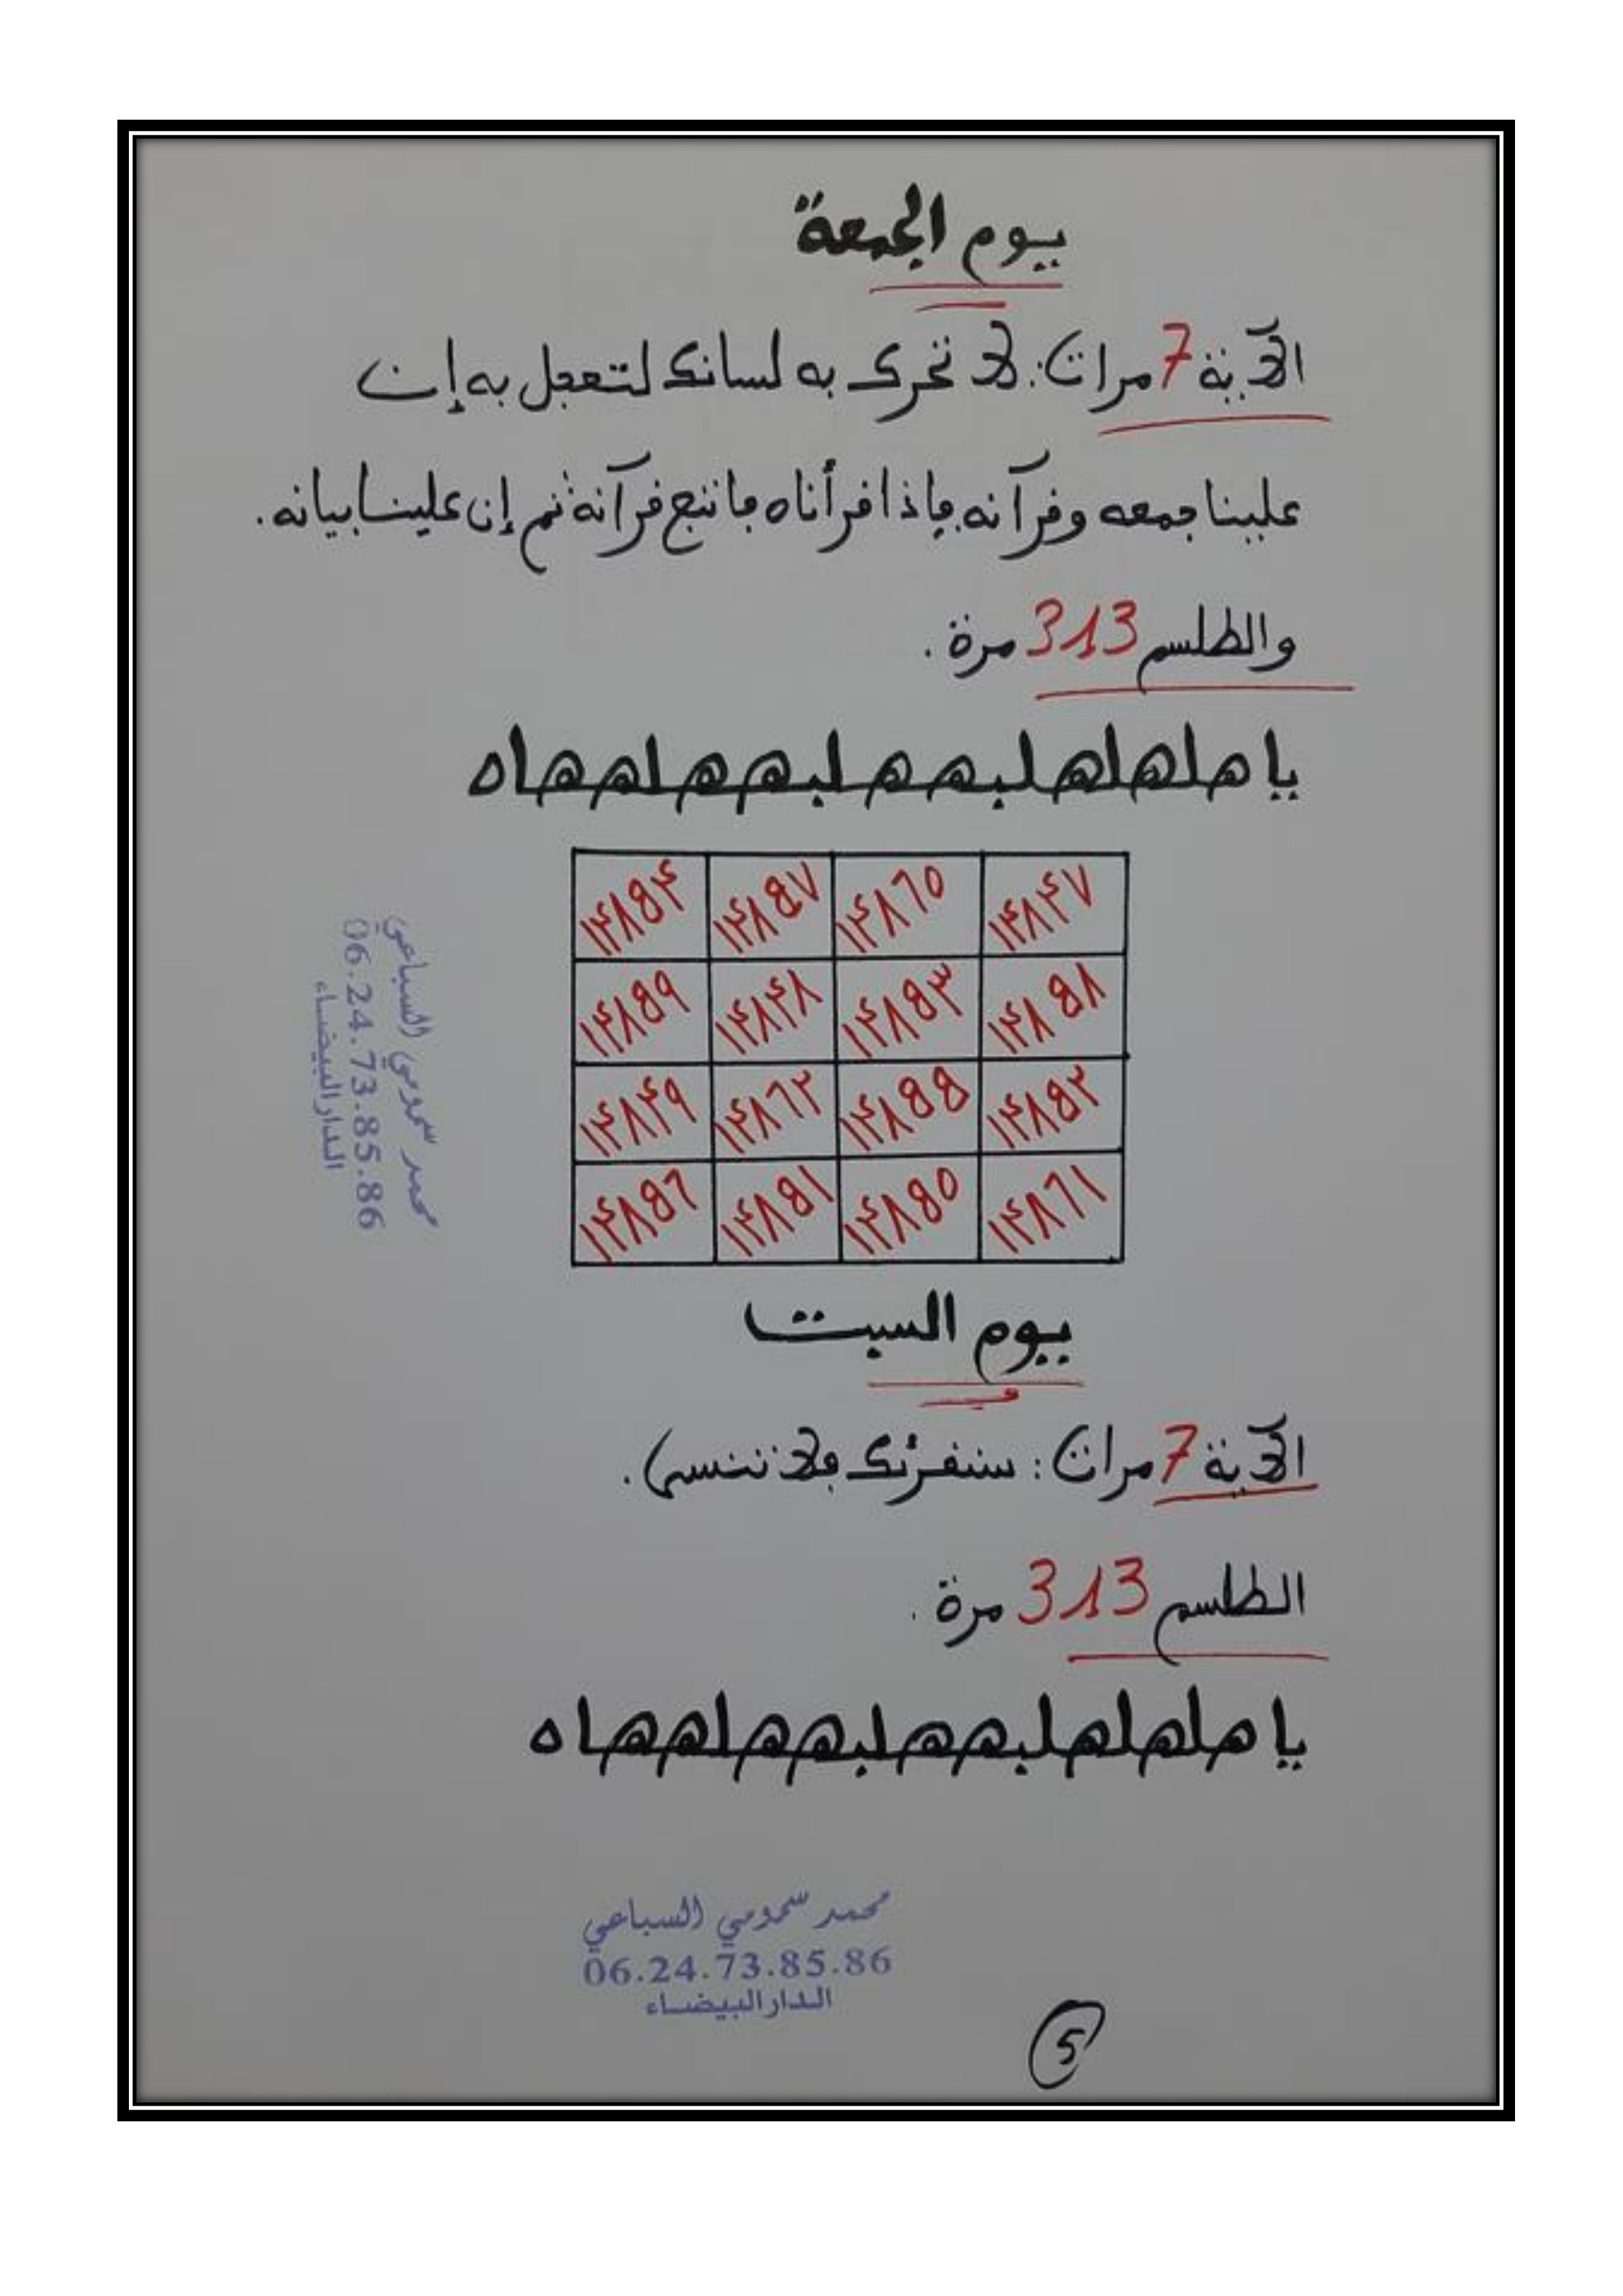 يوم الجمعة
الآية 7 مرات: لا تحرك به لسانك لتعجل به إن
علينا جمعه وقرآنه فإذا قرأناه فاتبع قرآنه ثم إن علينا بيانه.
والطلسم 313 مرة.
يا هلهلهلبههلبههلههاه
١۴٨۴٧ ١۴٨٦٠ ١۴٨۵٧ ١۴٨۵۴
١۴٨۵٨ ١۴٨۵٣ ١۴٨۴٨ ١۴٨۵٩
١۴٨۵٢ ١۴٨۵۵ ١۴٨٦٢ ١۴٨۴٩
١۴٨٦١ ١۴٨۵٠ ١۴٨۵١ ١۴٨۵٦
محمد سمومي السباعي
06.24.73.85.86
الدار البيضاء
يوم السبت
الآية 7 مرات: سنقرئك فلا تنسى.
الطلسم 313 مرة.
يا هلهلهلبههلبههلههاه
محمد سمومي السباعي
06.24.73.85.86
الدار البيضاء
5